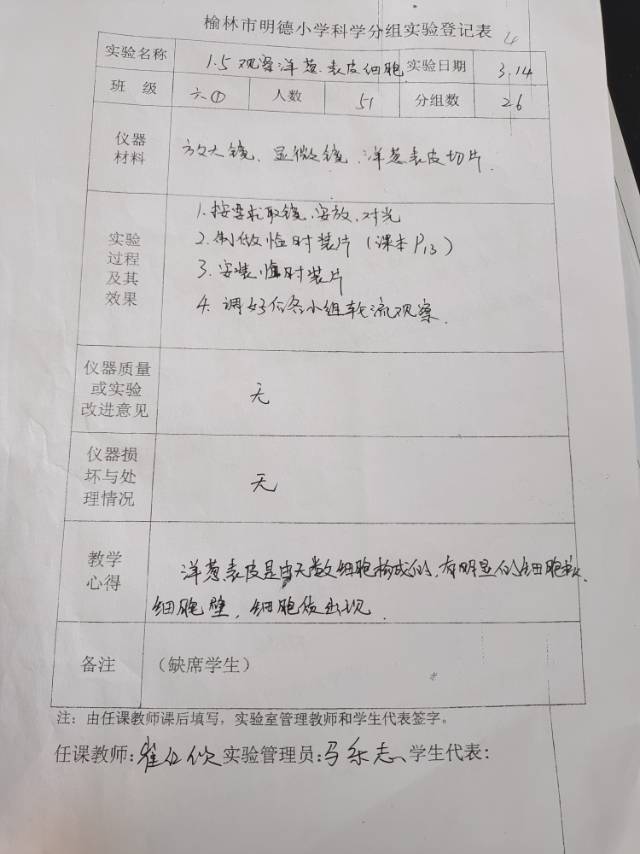 榆林市明德小学科学分组实验登记表
实验名称 1.5 观察洋葱表皮细胞 实验日期 3.14
班 级 六① 人数 51 分组数 26
仪器材料 放大镜、显微镜、洋葱表皮切片.
实验过程及其效果
1.按要求取镜、安放、对光
2.制做临时装片(课本P13)
3.安装临时装片
4.调好后各小组轮流观察.
仪器质量或实验改进意见 无
仪器损坏与处理情况 无
教学心得 洋葱表皮是由无数细胞构成的,有明显的细胞
细胞壁,细胞质出现.
备注 (缺席学生)
注:由任课教师课后填写,实验室管理教师和学生代表签字。
任课教师:崔 实验管理员:马 志 学生代表: